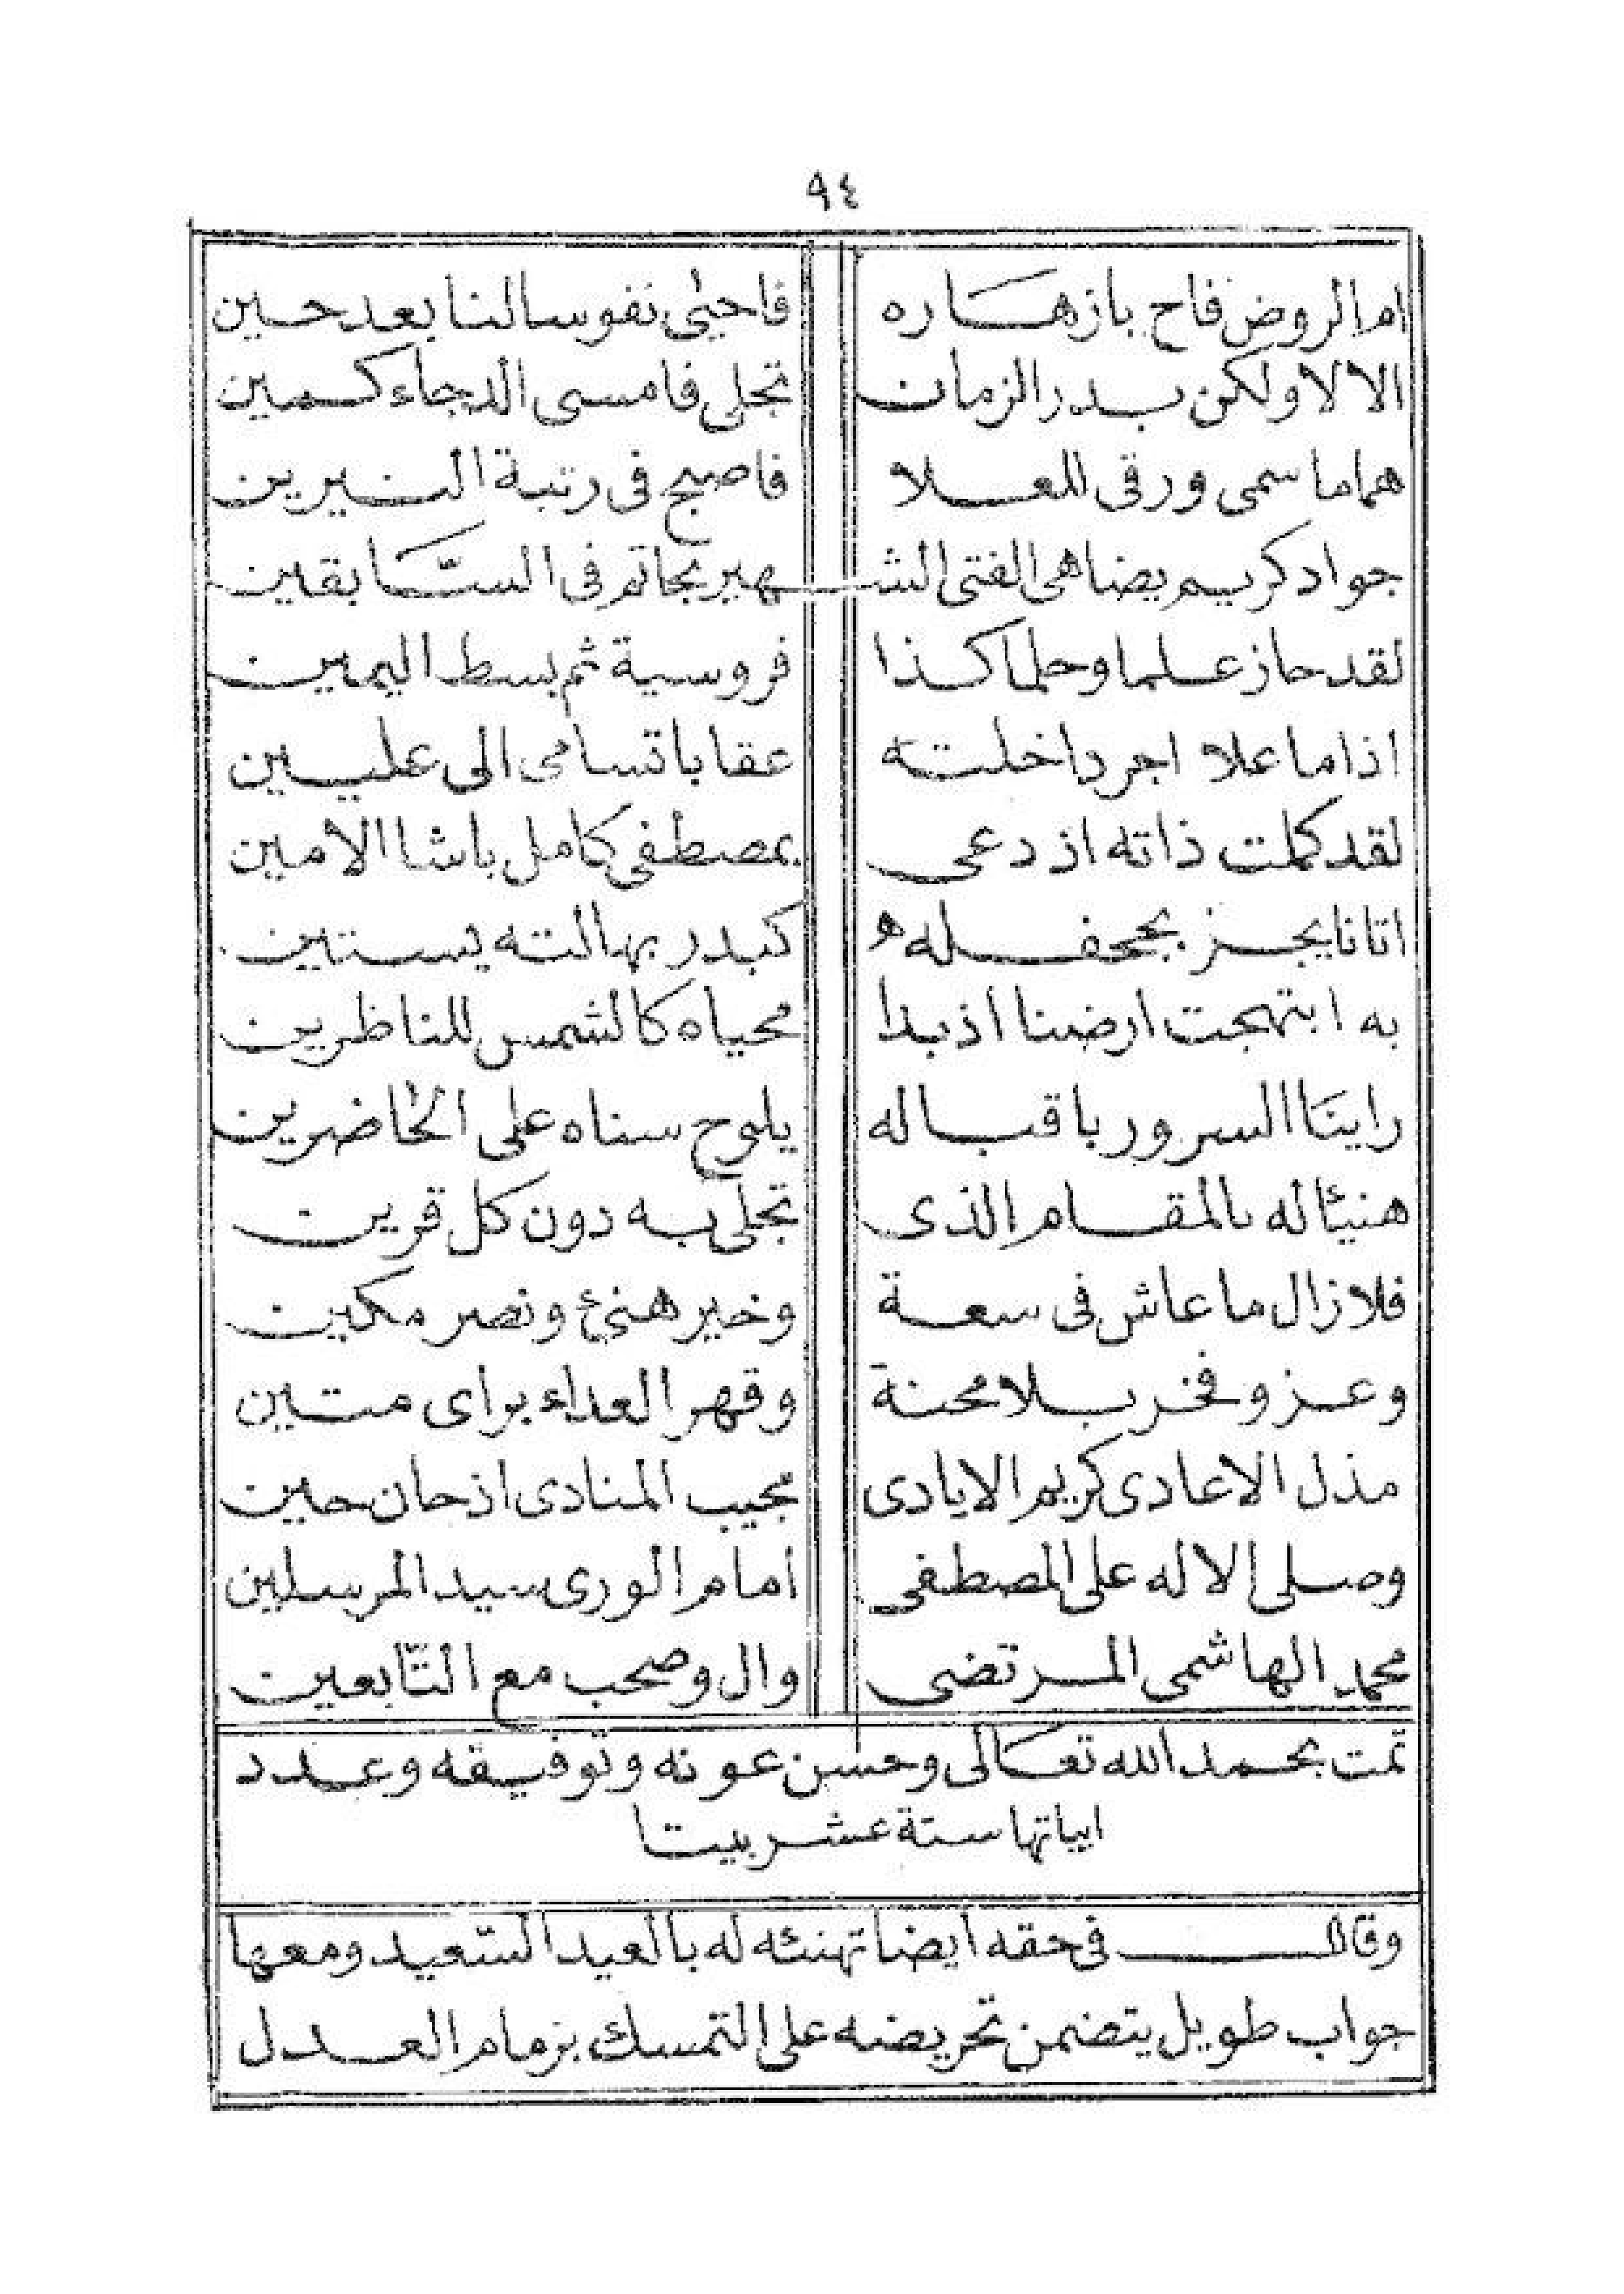 ٩٤
ام الروض فاح بازهاره فاحيى نفوسا لنا بعد حين
الا لا ولكن بدر الزمان تجلى فامسى الدجاء كمين
هماما سمى ورقى للعلا فاصبح فى رتبة النيرين
جواد كريم يضاهى الفتى الشهير بحاتم فى السّابقين
لقد حاز علما وحلما كذا فروسية ثم بسط اليمين
اذا ما علا اجردا خلته عقابا تسامى الى عليين
لقد كملت ذاته اذ دعى بمصطفى كامل باشا الامين
اتانا بجحفله كبدر بهالته يستبين
به ابتهجت ارضنا اذ بدا محياه كالشمس للناظرين
راينا السرور باقباله يلوح سناه على الحاضرين
هنيئا له بالمقام الذى تجلى به دون كل قرين
فلا زال ما عاش فى سعة وخير هنئ ونصر مكين
وعز وفخر بلا محنة وقهر العداء براى متين
مذل الاعادى كريم الايادى مجيب المنادى اذ حان حين
وصلى الاله على المصطفى امام الورى سيد المرسلين
محمد الهاشمى المرتضى وال وصحب مع التّابعين
تمت بحمد الله تعالى وحسن عونه وتوفيقه وعدد
ابياتها ستة عشر بيتا
وقال فى حقه ايضا تهنئه له بالعيد السّعيد ومعها
جواب طويل يتضمن تحريضه على التمسك بزمام العدل